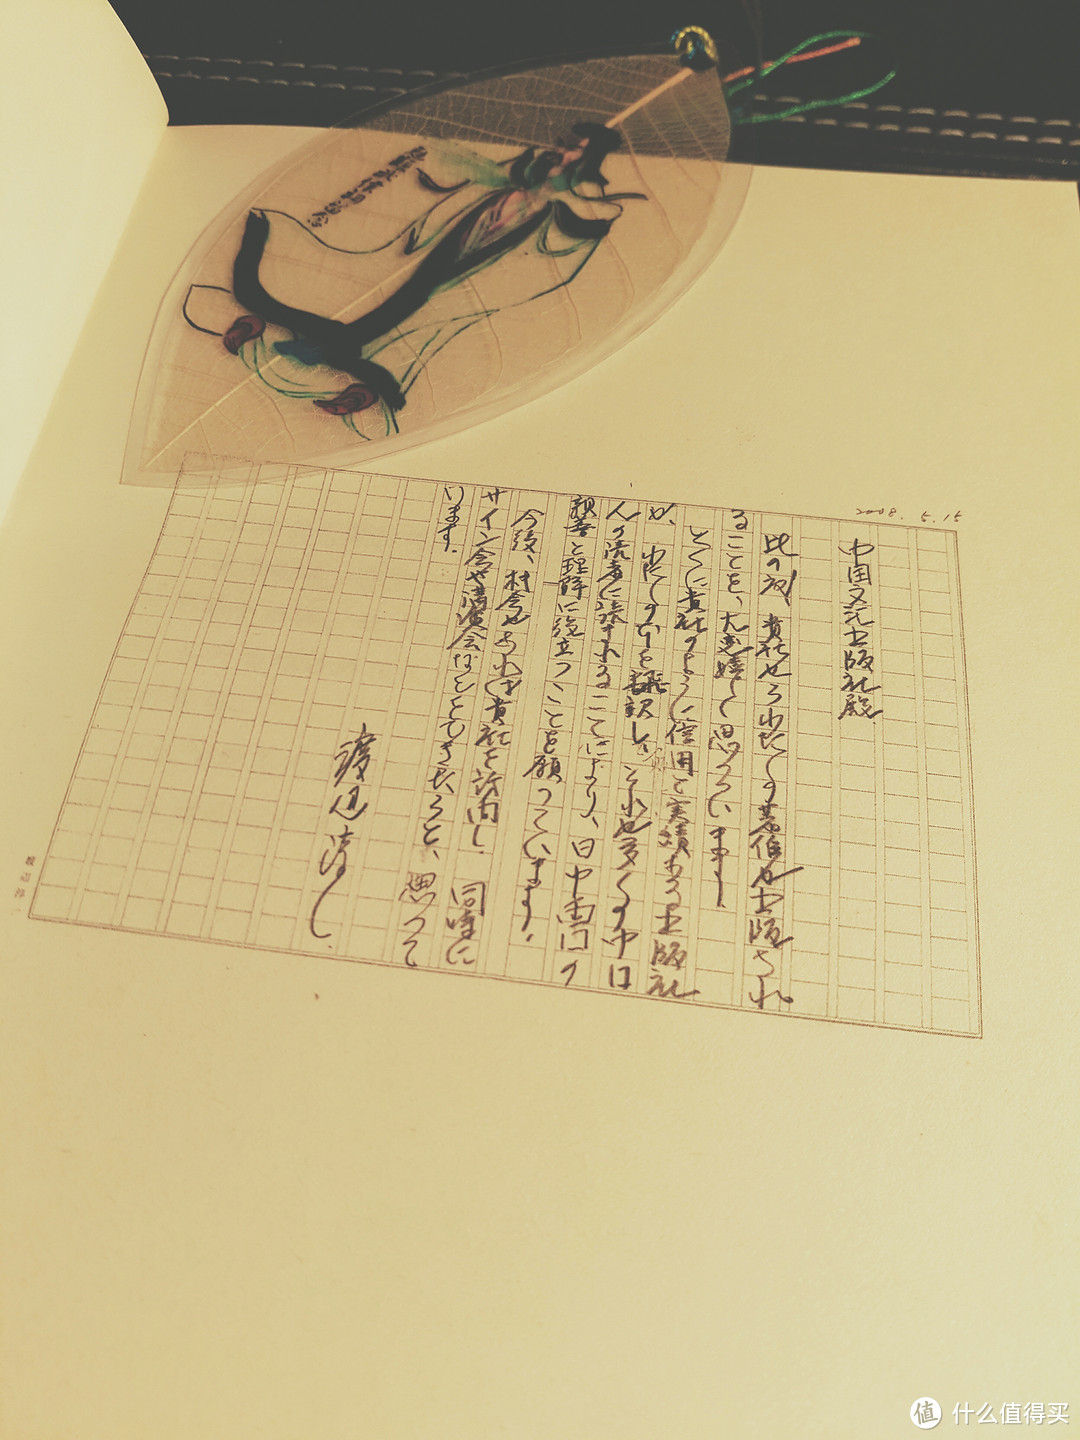 2008. 5. 15
中国文联出版社殿
此の度、貴社からわたしの著作が出版され
ることを、大変嬉しく思っています。
とくに貴社のように信用と実績ある出版社
が、わたしの本を翻訳し、それが多くの中国
人の読者に読まれることにより、日中両国の
親善と理解に役立つことを願っています。
今後、機会があれば貴社を訪問し、同時に
サイン会や講演会などもできたらと、思って
います。
渡辺淳一
值 什么值得买